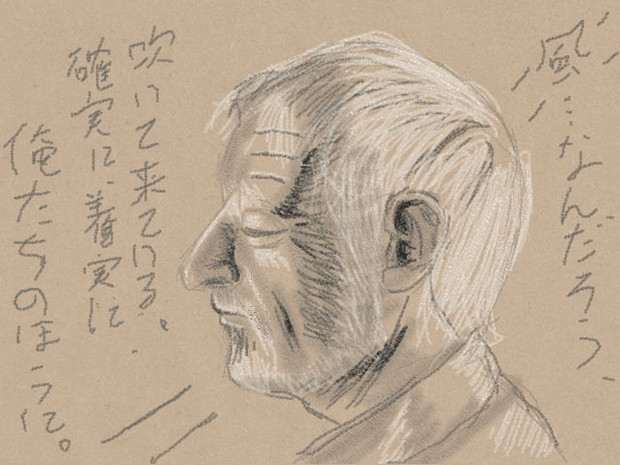 風…なんだろう、
吹いて来ている。
確実に、着実に
俺たちのほうに。